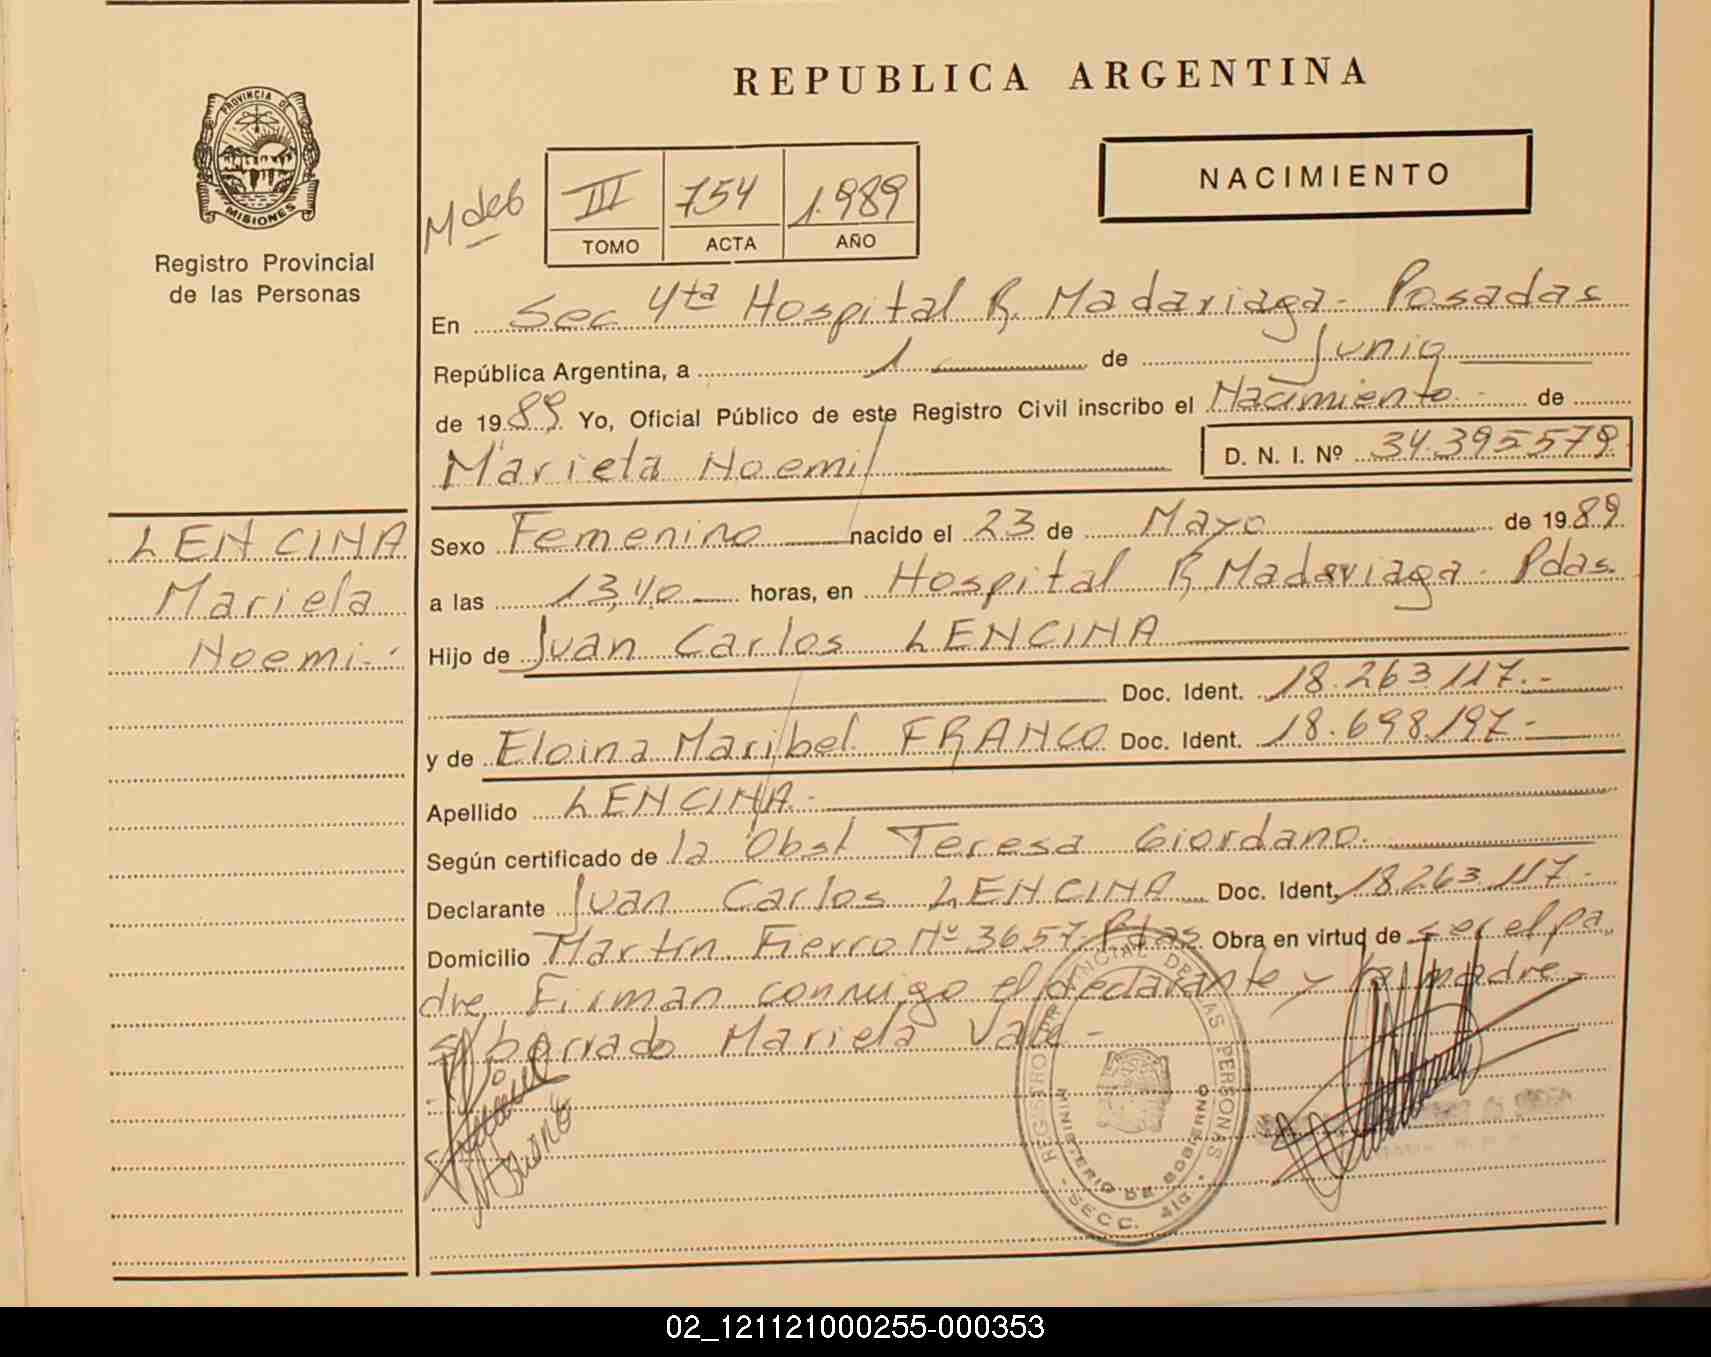 REPUBLICA ARGENTINA
PROVINCIA DE
MISIONES
Registro Provincial
de las Personas
NACIMIENTO
Mdeb
III 754 1.989
TOMO ACTA AÑO
En Sec 4ta Hospital R. Madariaga - Posadas
República Argentina, a 1 de Junio
de 1989 Yo, Oficial Público de este Registro Civil inscribo el Nacimiento de
Mariela Noemi D. N. I. Nº 34.395.579
LENCINA
Mariela
Noemi.-
Sexo Femenino nacido el 23 de Mayo de 1989
a las 13,40 horas, en Hospital R. Madariaga - Pdas.
Hijo de Juan Carlos LENCINA
Doc. Ident. 18.263.117.-
y de Eloina Maribel FRANCO Doc. Ident. 18.698.197.-
Apellido LENCINA.-
Según certificado de la Obst Teresa Giordano.
Declarante Juan Carlos LENCINA Doc. Ident. 18.263.117.-
Domicilio Martin Fierro Nº 3657- Pdas Obra en virtud de ser el pa
dre. Firman conmigo el declarante y la madre.-
s/borrado Mariela Vale -
REGISTRO PROVINCIAL DE LAS PERSONAS
MINISTERIO DE GOBIERNO
- SECC. 4ta. -
02_121121000255-000353